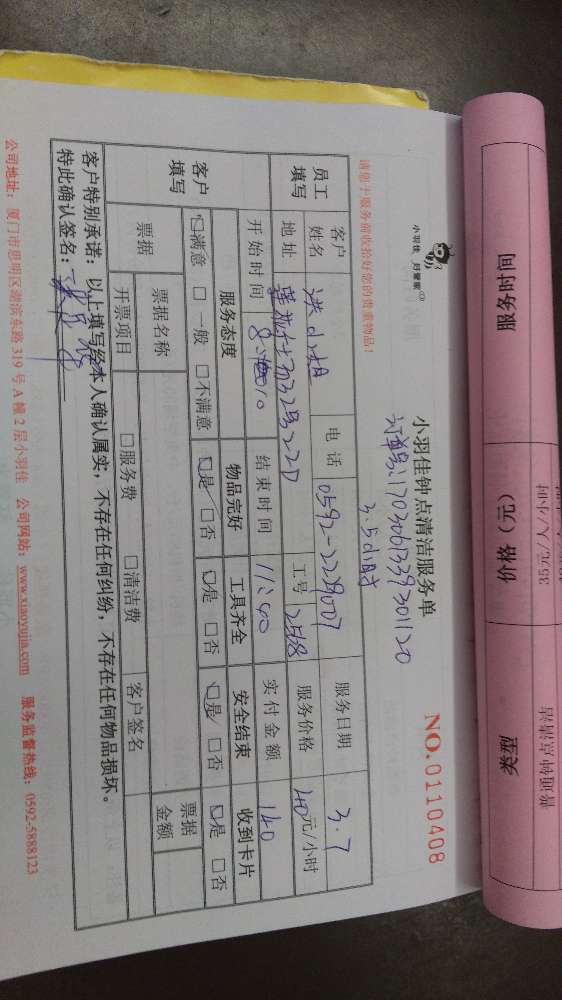 小羽佳 好管家
小羽佳钟点清洁服务单
NO.0110408
订单号:1703061339301120
请您于服务前收拾好您的贵重物品!
3.5小时
员工填写
客户姓名 洪小姐 电话 0592-2229007 服务日期 3.7
地址 工号 2518 服务价格 40元/小时
开始时间 结束时间 11:40 实付金额 140
客户填写
服务态度 物品完好 工具齐全 安全结束 收到卡片
☑满意 □一般 □不满意 ☑是 □否 ☑是 □否 ☑是 □否 ☑是 □否
票据 票据名称 客户签名 票据金额
开票项目 □服务费 □清洁费
客户特别承诺:以上填写经本人确认属实,不存在任何纠纷,不存在任何物品损坏。
特此确认签名:
公司地址:厦门市思明区湖滨东路319号A幢2层小羽佳 公司网站:www.xiaoyujia.com 服务监督热线:0592-5888123
服务时间 价格(元) 类型
35元/人/小时
普通钟点清洁